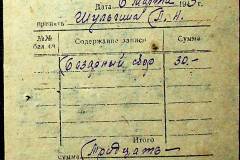 Дата 6 марта 195 г.
принять Шульгина П. Н.
№№ Содержание записи Сумма
Базарный сбор 30-
Итого
Сумма Тридцать